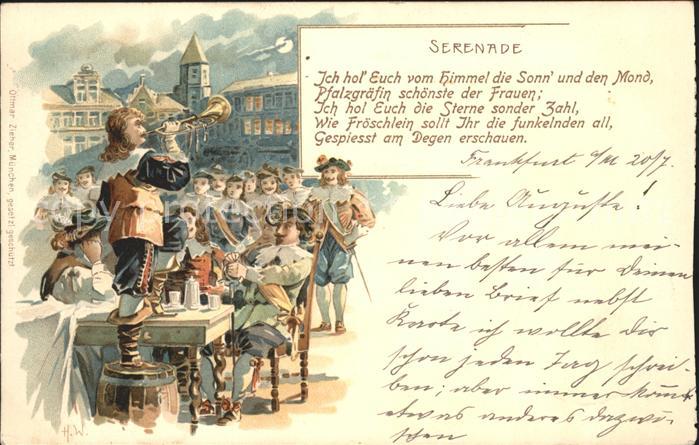 SERENADE
Ich hol' Euch vom Himmel die Sonn' und den Mond,
Pfalzgräfin schönste der Frauen;
Ich hol Euch die Sterne sonder Zahl,
Wie Fröschlein sollt Ihr die funkelnden all,
Gespiesst am Degen erschauen.
Frankfurt a/M 20/7.
Liebe Auguste!
Vor allem mei-
nen besten für Deinen
lieben Brief nebst
Karte ich wollte Dir
schon jeden Tag schrei-
ben; aber immer kommt
etwas anderes dazwi-
schen
Ottmar Zieher, München, gesetzl. geschützt
H.W.